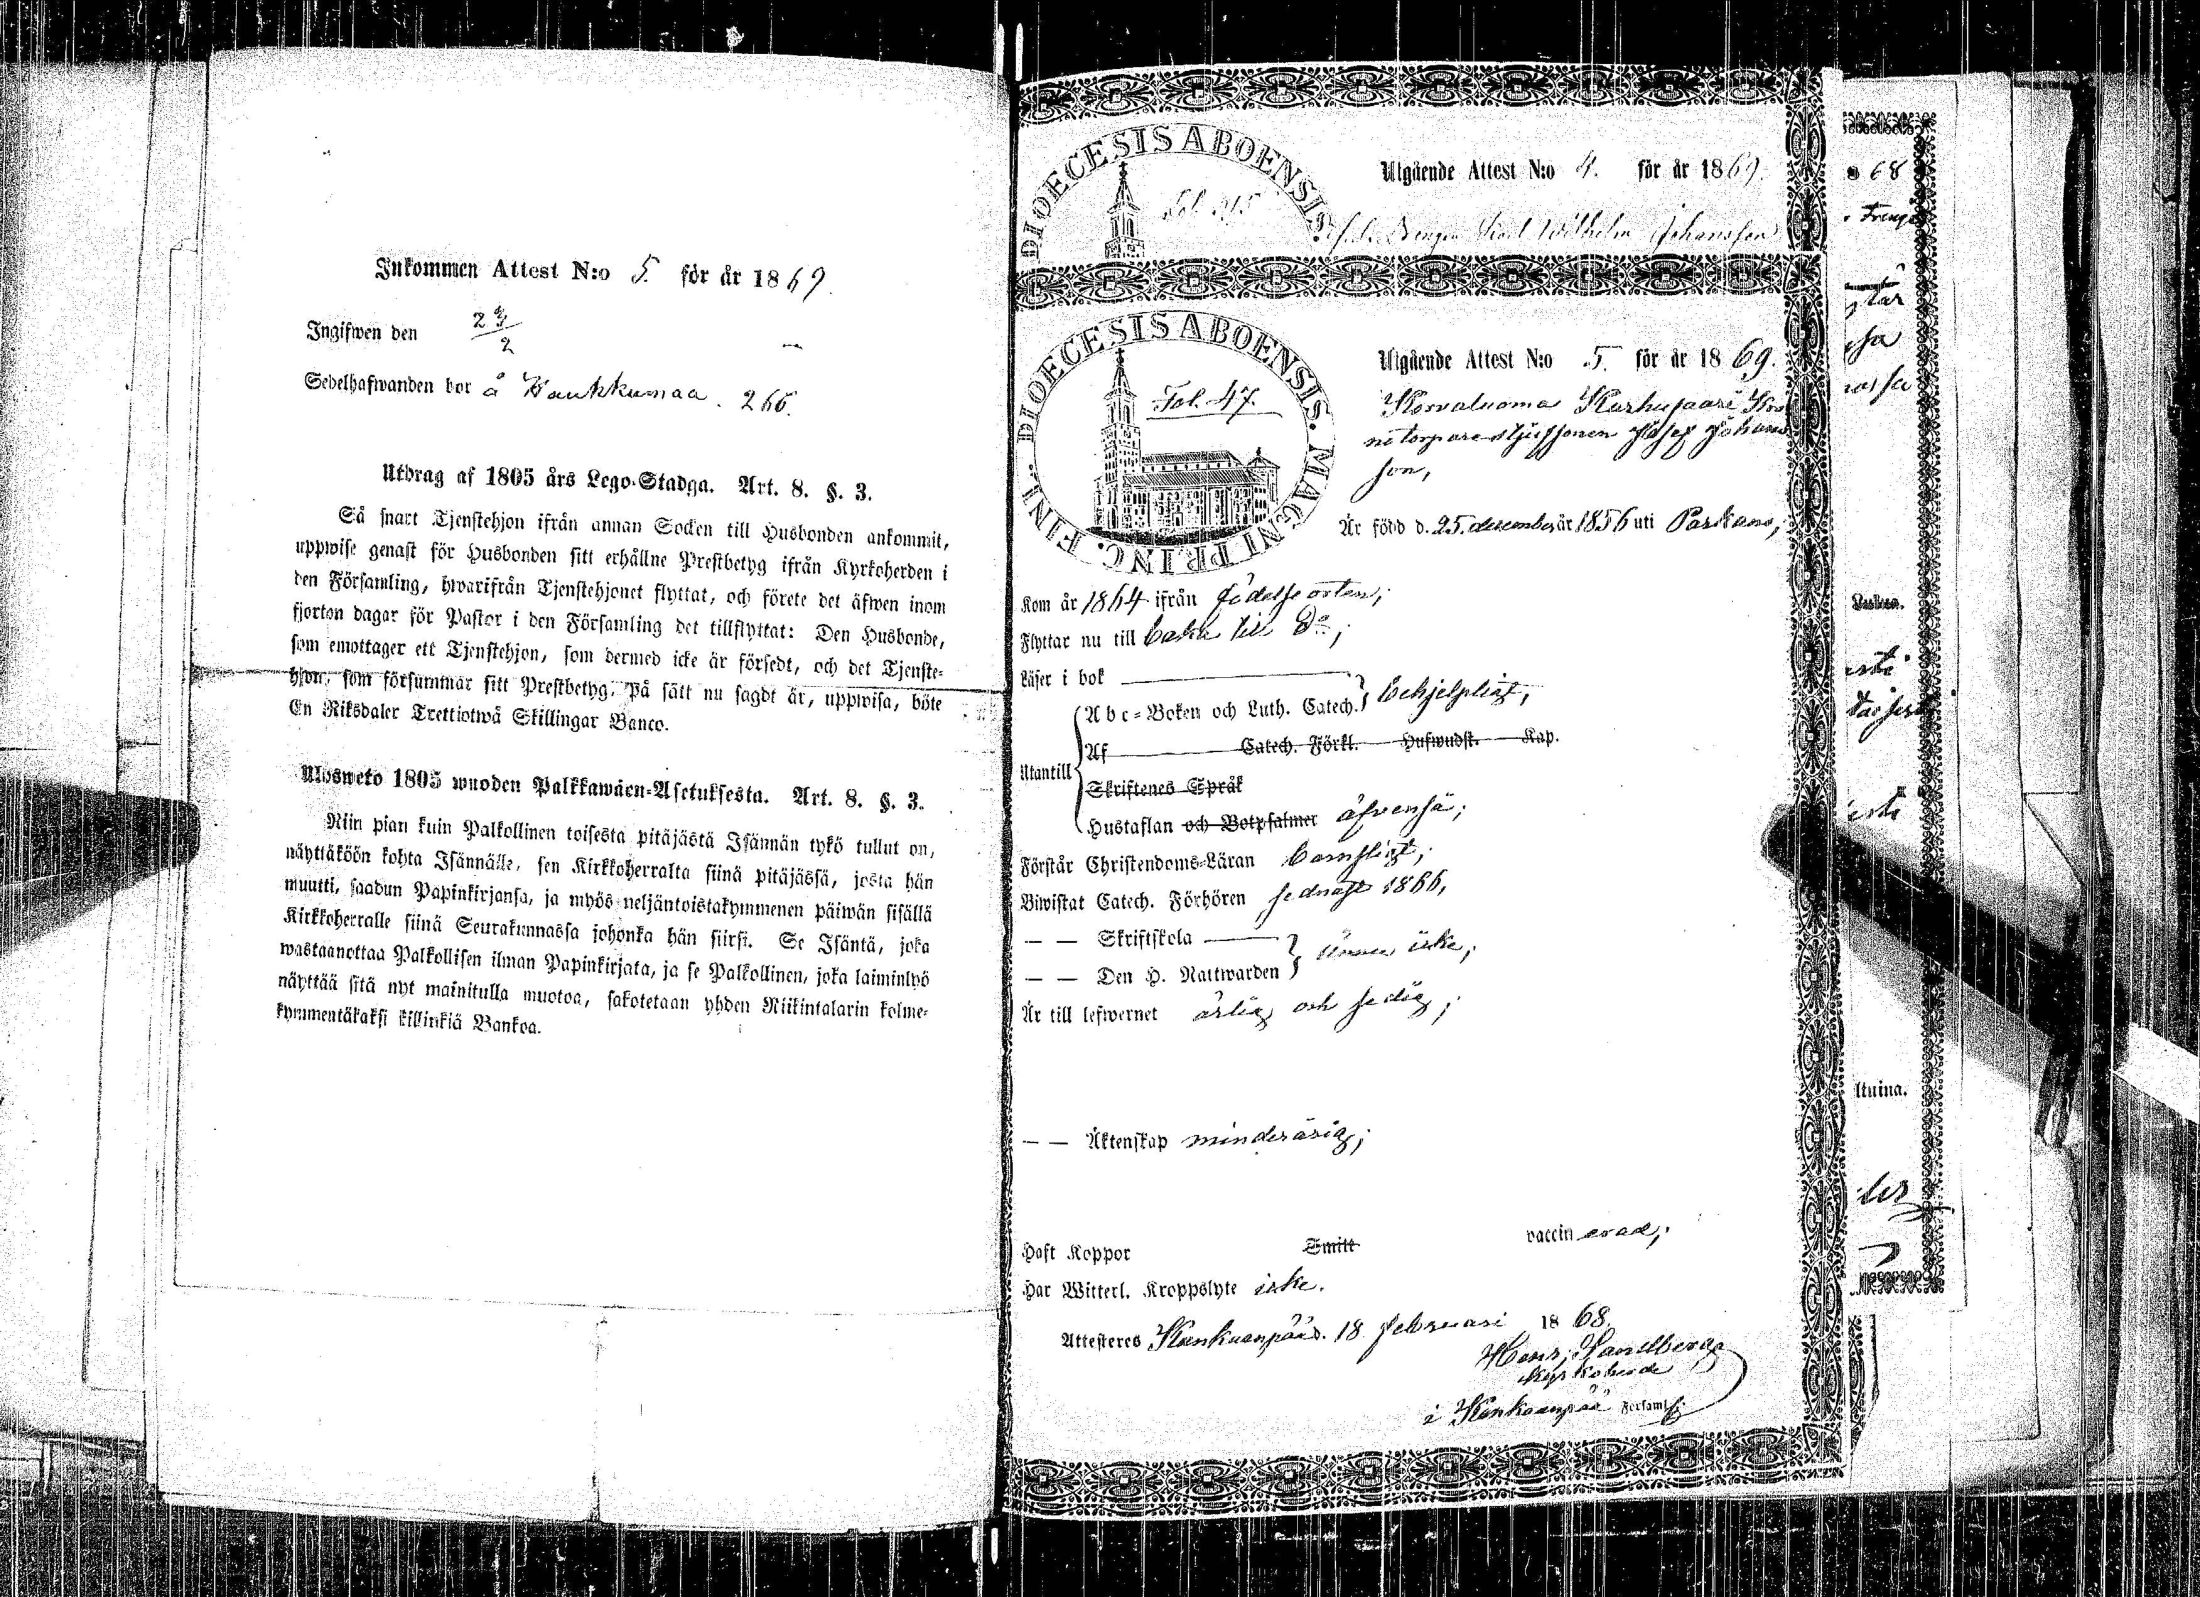 Inkommen Attest N:o 5. för år 1869.
Ingifwen den 23/2
Sedelhafwanden bor å Kaukkumaa. 266.
Utdrag af 1805 års Lego-Stadga. Art. 8. §. 3.
Så snart Tjenstehjon ifrån annan Socken till Husbonden ankommit,
uppwise genast för Husbonden sitt erhållne Prestbetyg ifrån Kyrkoherden i
den Församling, hwarifrån Tjenstehjonet flyttat, och förete det äfwen inom
fjorton dagar för Pastor i den Församling det tillflyttat: Den Husbonde,
som emottager ett Tjenstehjon, som dermed icke är försedt, och det Tjenste-
hjon, som försummar sitt Prestbetyg, på sätt nu sagdt är, uppwisa, böte
En Riksdaler Trettiotwå Skillingar Banco.
Ulosweto 1805 wuoden Palkkawäen-Asetuksesta. Art. 8. §. 3.
Niin pian kuin Palkollinen toisesta pitäjästä Isännän tykö tullut on,
näyttäköön kohta Isännälle, sen Kirkkoherralta siinä pitäjässä, josta hän
muutti, saadun Papinkirjansa, ja myös neljäntoistakymmenen päiwän sisällä
Kirkkoherralle siinä Seurakunnassa johonka hän siirsi. Se Isäntä, joka
wastaanottaa Palkollisen ilman Papinkirjata, ja se Palkollinen, joka laiminlyö
näyttää sitä nyt mainitulla muotoa, sakotetaan yhden Riikintalarin kolme-
kymmentäkaksi killinkiä Bankoa.
DIOECESIS ABOENSIS.
Utgående Attest N:o 4. för år 1869.
Wilhelm Johansson
DIOECESIS ABOENSIS. MAGNI PRINC. FINL.
Fol. 47.
Utgående Attest N:o 5. för år 1869.
Korvaluoma Karhusaari Kro
netorpare Josef Johans
son,
Är född d. 25. december år 1856 uti Parkano,
Kom år 1864 ifrån födelseorten;
Flyttar nu till baka till Do;
Läser i bok
Abc-Boken och Luth. Catech. behjelpligt,
Af Catech. Förkl. Hufwudst. Kap.
Utantill
Skriftenes Språk
Hustaflan och Botpsalmer äfvenså;
Förstår Christendoms-Läran barnsligt;
Biwistat Catech. Förhören sednast 1866,
— — Skriftskola
ännu icke;
— — Den H. Nattwarden
Är till lefwernet ärlig och sedig;
— — Äktenskap minderårig;
Haft Koppor Smitt vaccinerad;
Har Witterl. Kroppslyte icke.
Attesteres Kankaanpää d. 18 februari 1868.
Sandberg
Kyrkoherde
i Kankaanpää Forsaml.
68
Ituina.